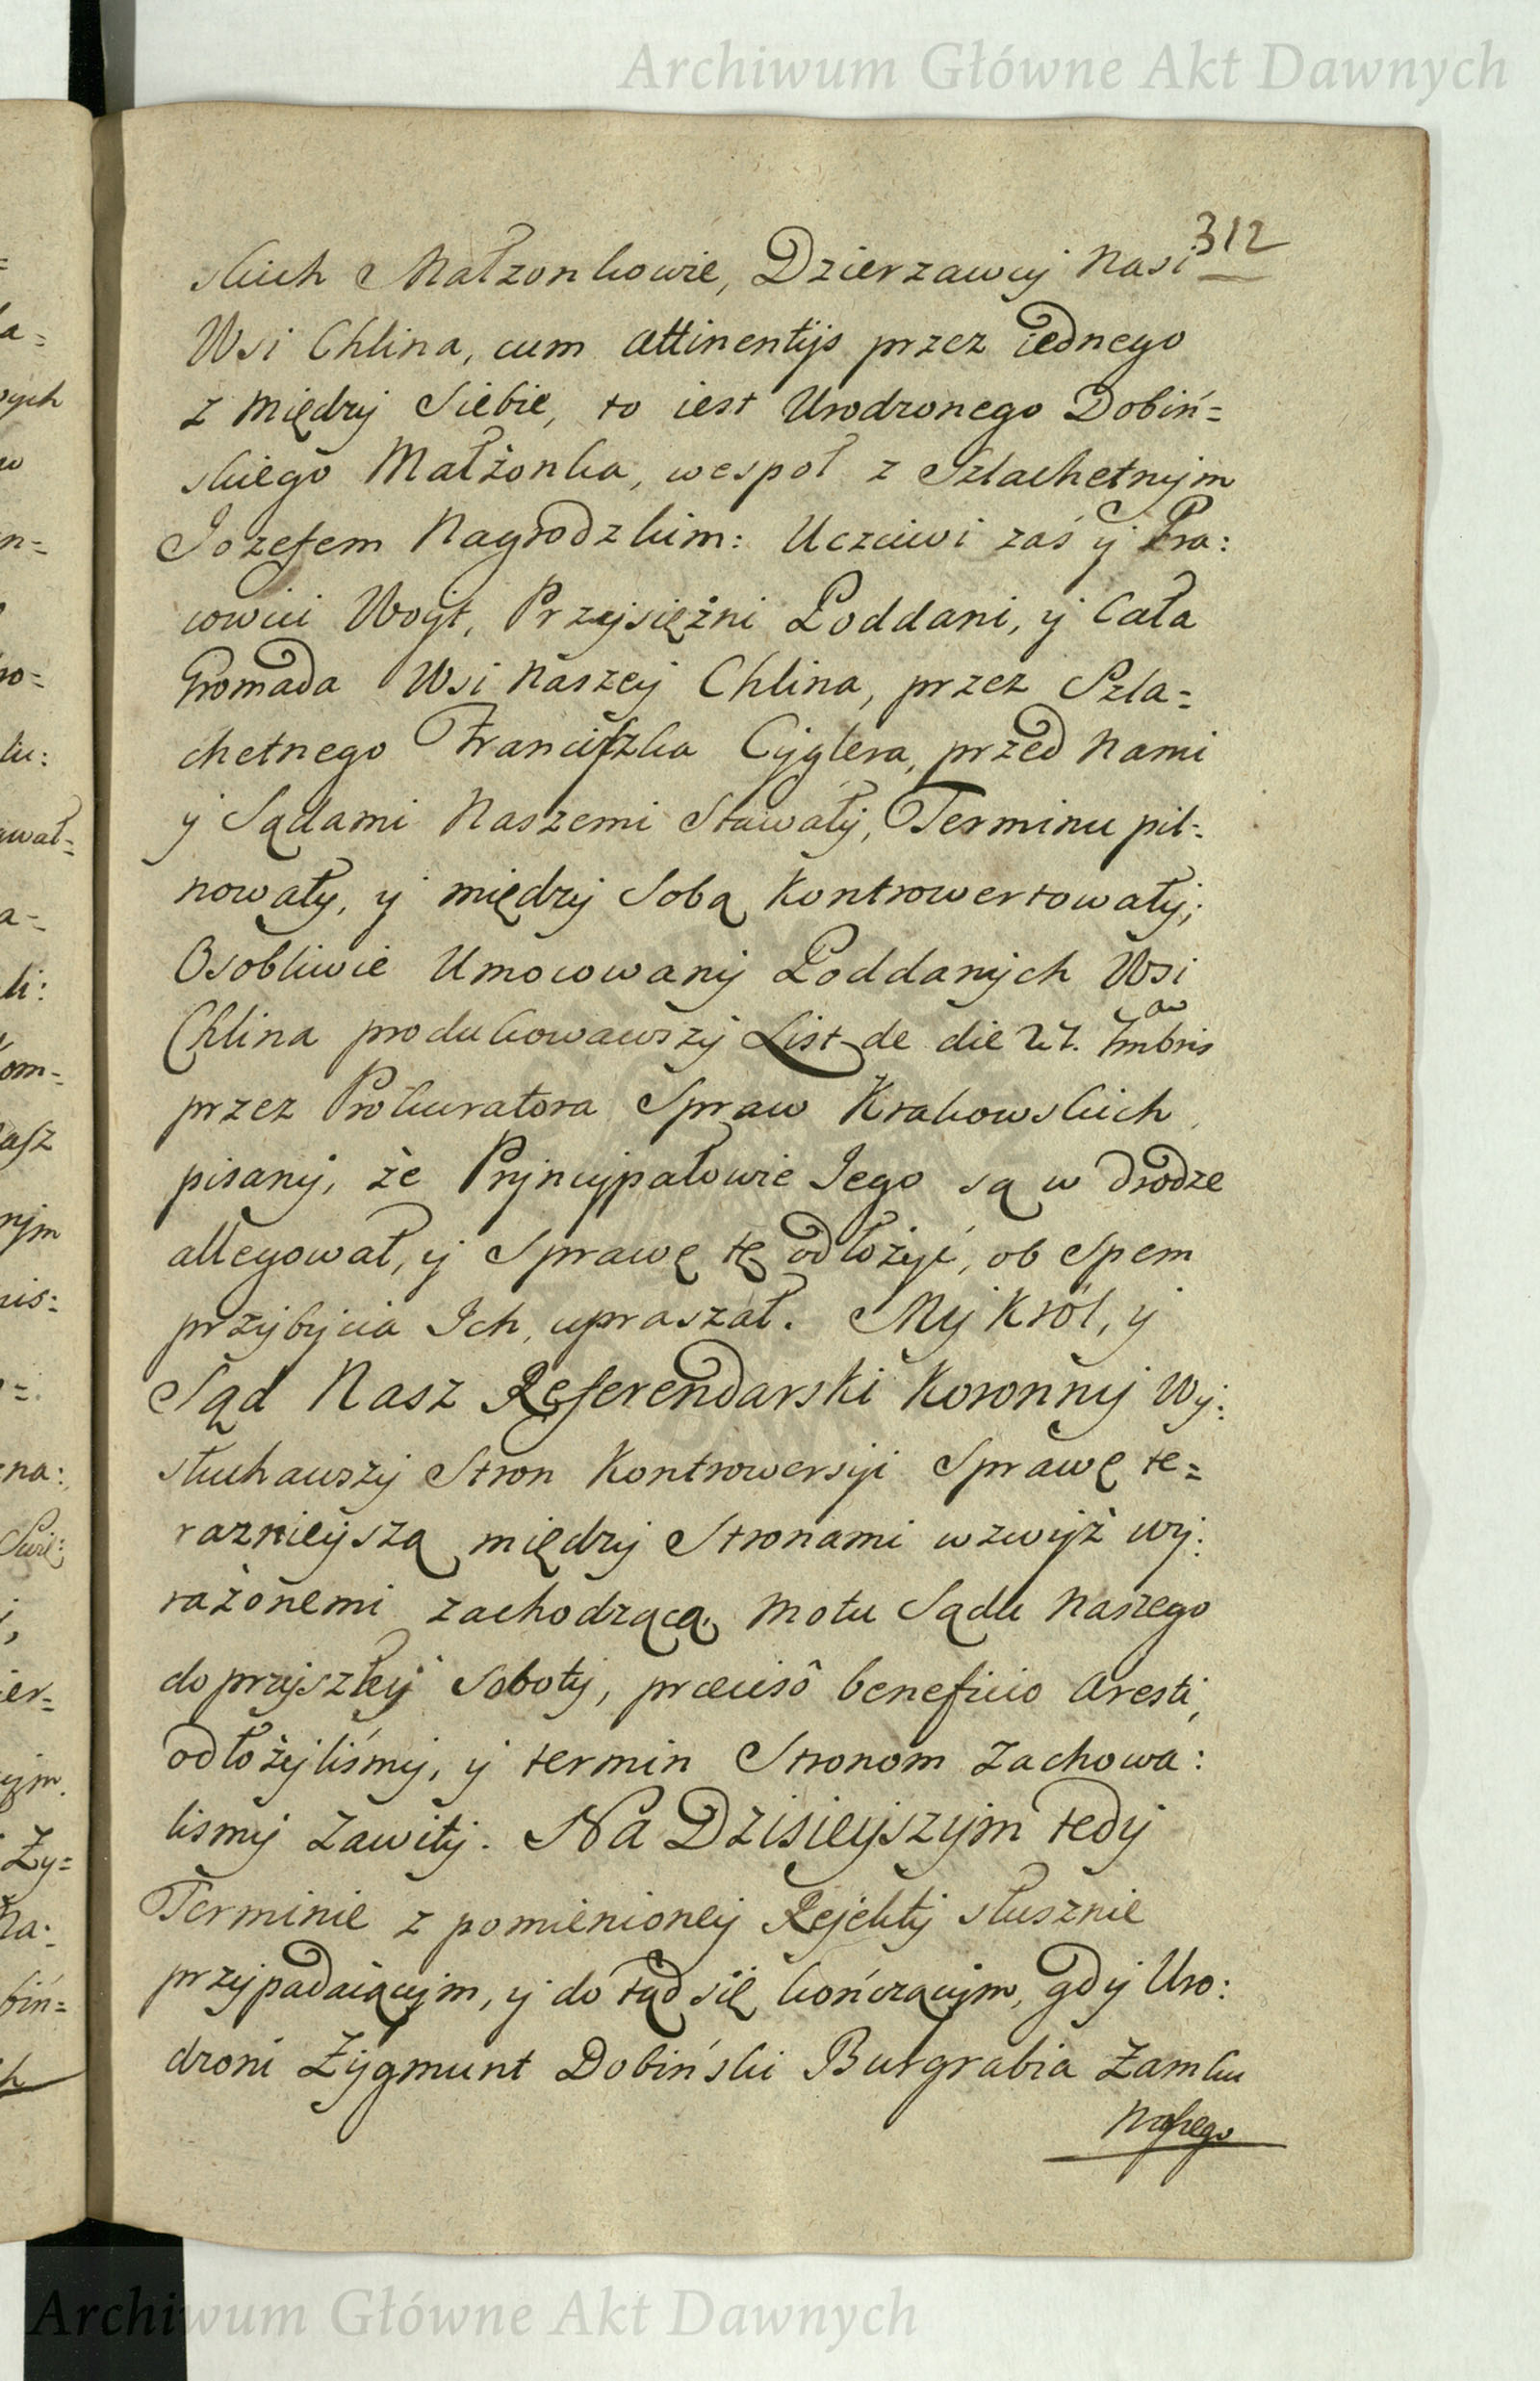 Archiwum Główne Akt Dawnych
312
skich Małzonkowie, Dzierzawcy Nasi
Wsi Chlina, cum attinentijs przez iednego
z między Siebie, to iest Urodzonego Dobiń=
skiego Małżonka, wespoł z Szlachetnym
Jozefem Nagrodzkim: Uczciwi zaś y Pra:
cowici Woyt, Przysiężni Poddani, y Cała
Gromada Wsi Naszey Chlina, przez Szla=
chetnego Franciszka Cyglera, przed Nami
y Sądami Naszemi Stawały, Terminu pil=
nowały, y między Sobą Kontrowertowały;
Osobliwie Umocowany Poddanych Wsi
Chlina produkowawszy List de die 27. 7mbris
przez Prokuratora Spraw Krakowskich
pisany, że Pryncypałowie Jego są w drodze
allegował, y Sprawę tę odłożyć, ob Spem
przybycia Ich, upraszał. My Krol, y
Sąd Nasz Referendarski Koronny Wy:
słuchawszy Stron Kontrowersyi Sprawę te=
raznieyszą między Stronami wzwyż wy:
rażonemi zachodzącą, motu Sądu Naszego
do przyszłey Soboty, præcisô beneficio Aresti,
odłożyliśmy, y termin Stronom Zachowa:
lismy Zawity. Na Dzisieyszym tedy
Terminie z pomienioney Rejekty słusznie
przypadaiącym, y do tąd się kończącym, gdy Uro:
dzoni Zygmunt Dobiński Burgrabia Zamku
Naszego
Archiwum Główne Akt Dawnych